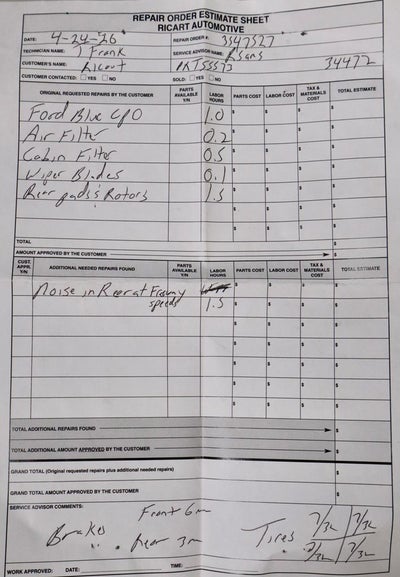 REPAIR ORDER ESTIMATE SHEET
RICART AUTOMOTIVE
DATE: 4-24-26 REPAIR ORDER #: 3547527
TECHNICIAN NAME: T Frank SERVICE ADVISOR NAME:
CUSTOMER'S NAME: Ricart PKT55573 34472
CUSTOMER CONTACTED: YES NO SOLD: YES NO
ORIGINAL REQUESTED REPAIRS BY THE CUSTOMER PARTS AVAILABLE Y/N LABOR HOURS PARTS COST LABOR COST TAX & MATERIALS COST TOTAL ESTIMATE
Ford Blue CPO 1.0 $ $ $ $
Air Filter 0.2 $ $ $ $
Cabin Filter 0.5 $ $ $ $
Wiper Blades 0.1 $ $ $ $
Rear pads & Rotors 1.5 $ $ $ $
$ $ $ $
$ $ $ $
TOTAL $
AMOUNT APPROVED BY THE CUSTOMER $
CUST. APPR. Y/N ADDITIONAL NEEDED REPAIRS FOUND PARTS AVAILABLE Y/N LABOR HOURS PARTS COST LABOR COST TAX & MATERIALS COST TOTAL ESTIMATE
Noise in Rear at Freeway $ $ $ $
speeds 1.5 $ $ $ $
$ $ $ $
$ $ $ $
$ $ $ $
$ $ $ $
$ $ $ $
TOTAL ADDITIONAL REPAIRS FOUND $
TOTAL ADDITIONAL AMOUNT APPROVED BY THE CUSTOMER $
GRAND TOTAL (Original requested repairs plus additional needed repairs) $
GRAND TOTAL AMOUNT APPROVED BY THE CUSTOMER $
SERVICE ADVISOR COMMENTS:
Front 6m 7/32 7/32
Brakes Tires
" Rear 3m 7/32 7/32
WORK APPROVED: DATE: TIME: